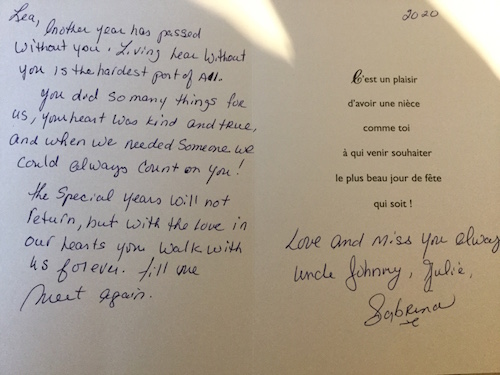 Lea, Another year has passed
without you. Living hear without
you is the hardest part of All.
You did so many things for
us, your heart was kind and true,
and when we needed someone we
could always count on you!
The special years will not
return, but with the love in
our hearts you walk with
us forever. till we
meet again.
2020
C'est un plaisir
d'avoir une nièce
comme toi
à qui venir souhaiter
le plus beau jour de fête
qui soit !
Love and miss you always
Uncle Johnny, Julie,
Sabrina